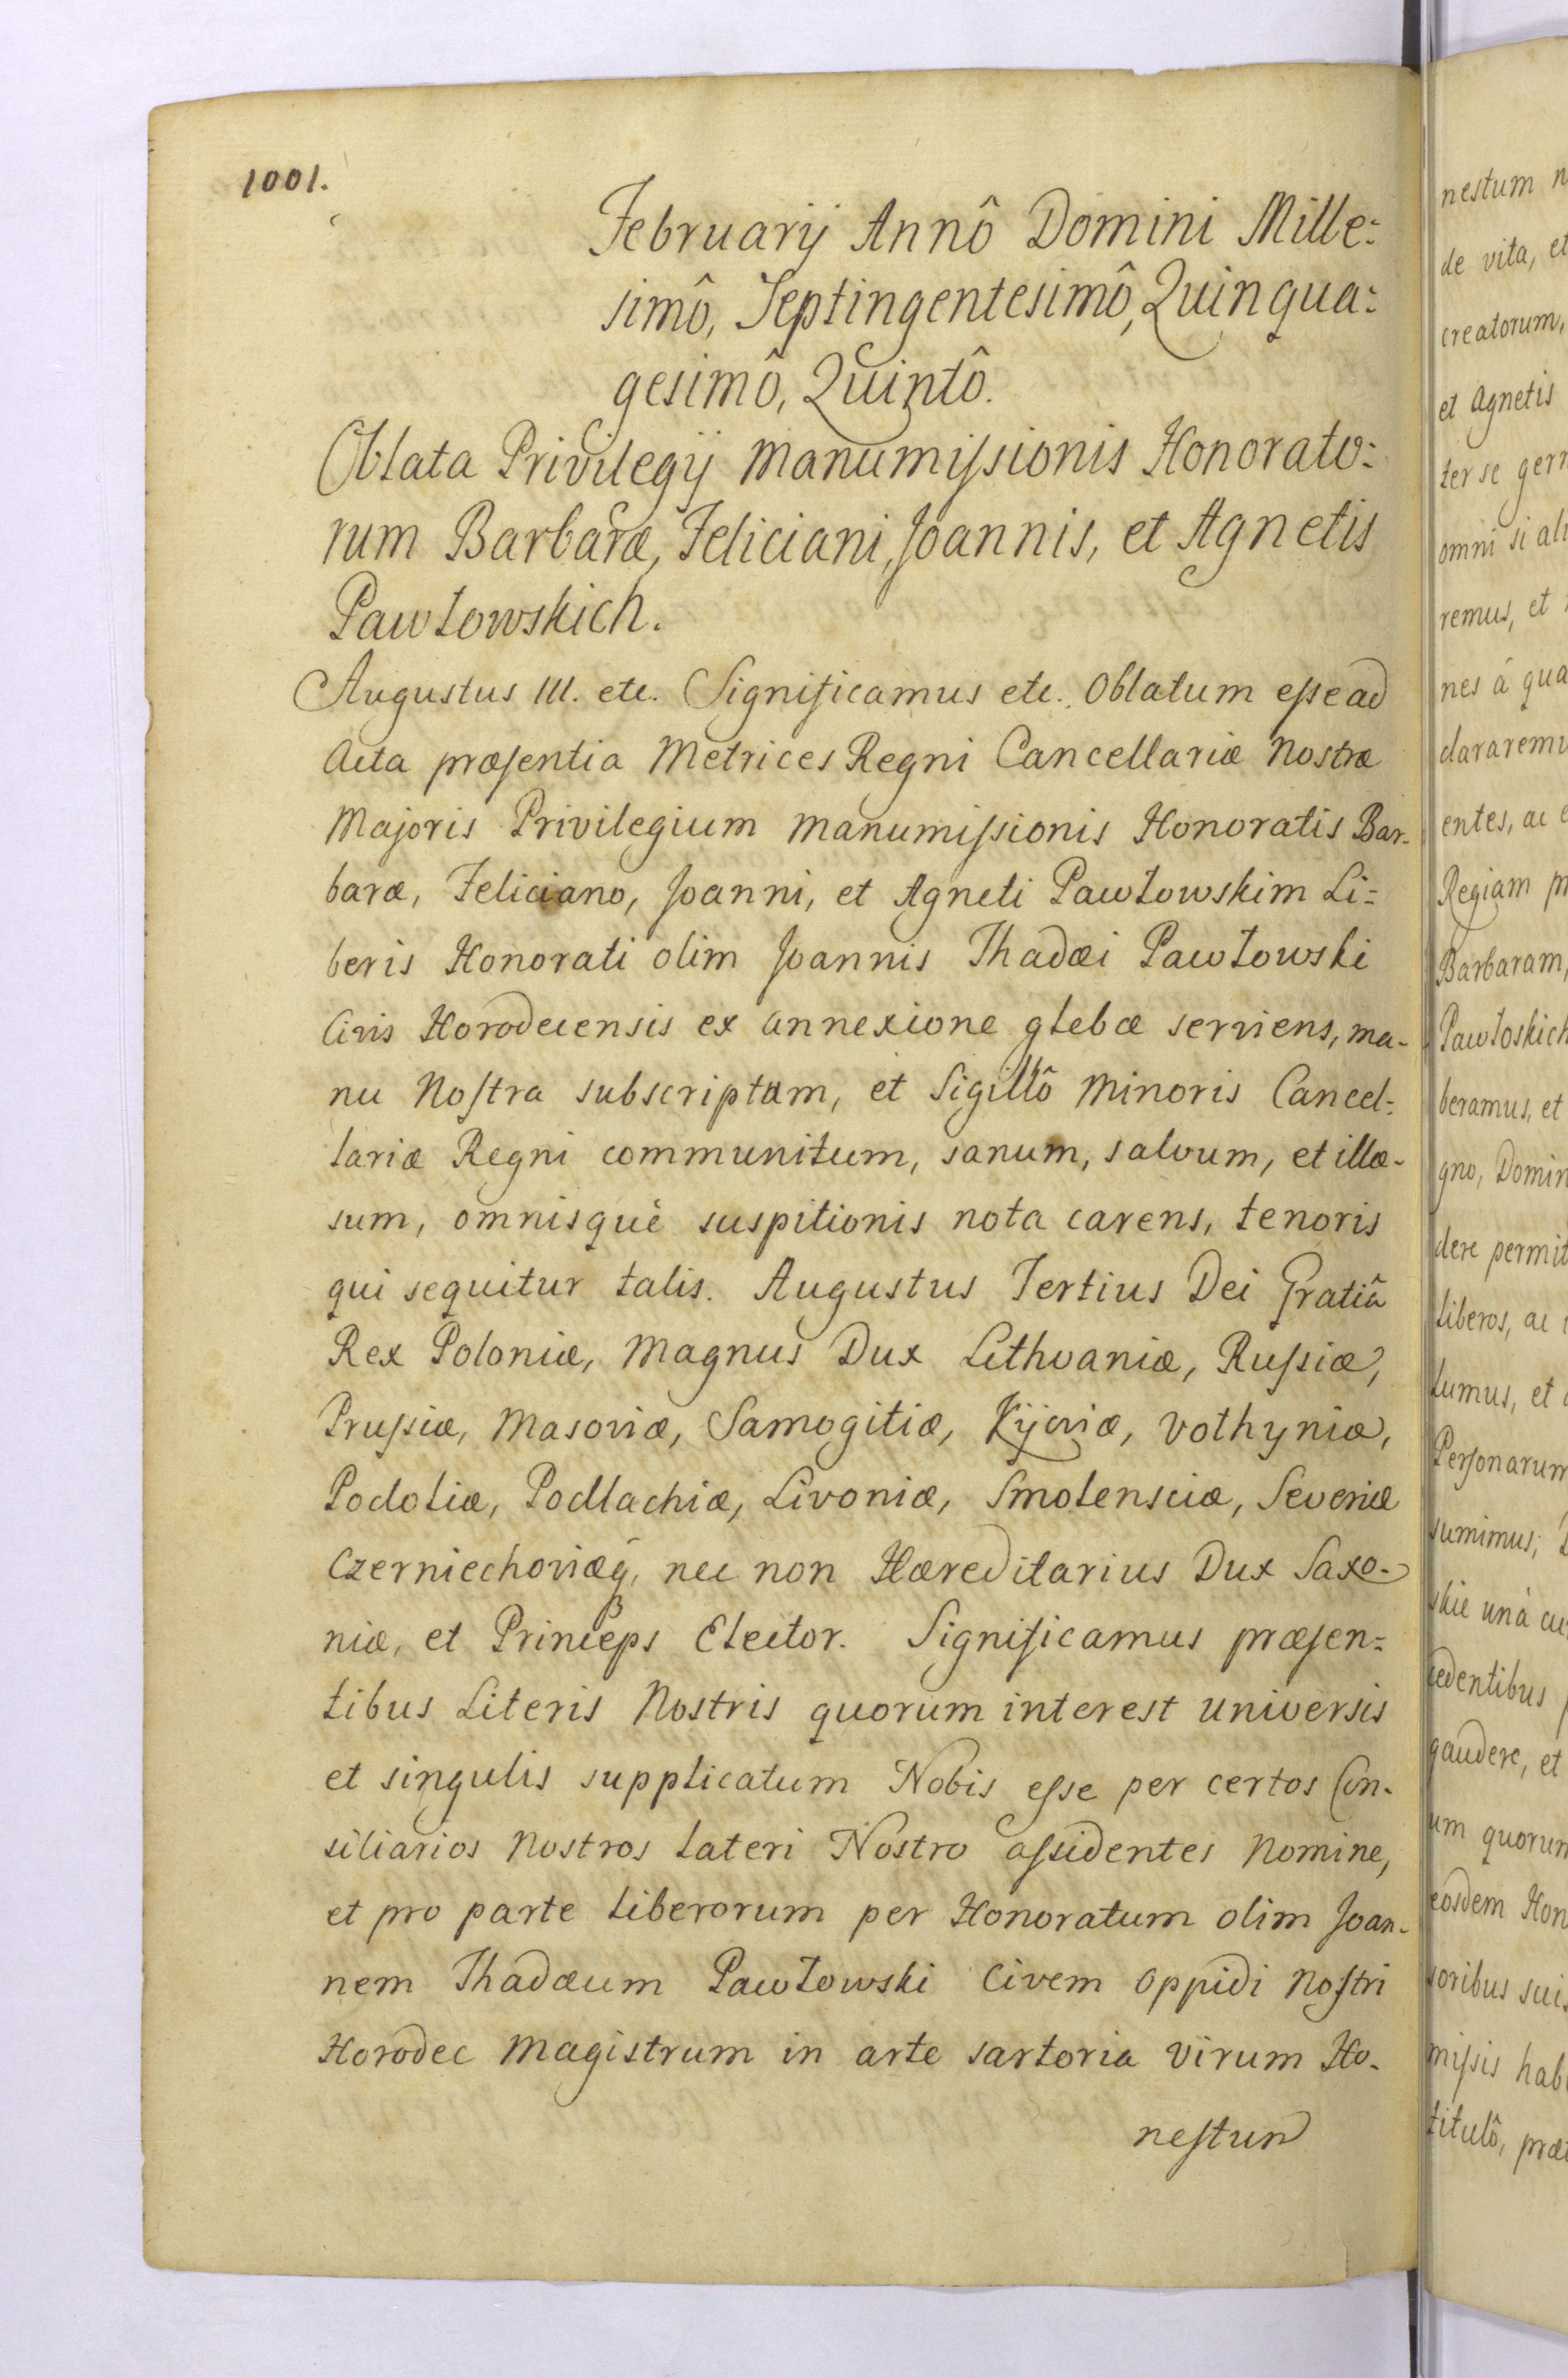 1001.
Februarij Annô Domini Mille:
simô, Septingentesimô, Quinqua:
gesimô, Quintô.
Oblata Privilegij Manumissionis Honorato:
rum Barbaræ, Feliciani, Joannis, et Agnetis
Pawłowskich.
Augustus III. etc. Significamus etc. Oblatum esse ad
Acta præsentia Metrices Regni Cancellariæ Nostræ
Majoris Privilegium Manumissionis Honoratis Bar-
baræ, Feliciano, Joanni, et Agneti Pawłowskim Li=
beris Honorati olim Joannis Thadæi Pawłowski
Civis Horodecensis ex annexione glebæ serviens, ma-
nu Nostra subscriptum, et Sigillô Minoris Cancel=
lariæ Regni communitum, sanum, salvum, et illæ-
sum, omnisquè suspitionis nota carens, tenoris
qui sequitur talis. Augustus Tertius Dei Gratiâ
Rex Poloniæ, Magnus Dux Lithvaniæ, Russiæ,
Prussiæ, Masoviæ, Samogitiæ, Kijoviæ, Volhyniæ,
Podoliæ, Podlachiæ, Livoniæ, Smolensciæ, Severiæ
Czerniechoviæq, nec non Hæreditarius Dux Saxo-
niæ, et Princeps Elector. Significamus præsen=
tibus Literis Nostris quorum interest universis
et singulis supplicatum Nobis esse per certos Con-
siliarios Nostros lateri Nostro assidentes Nomine,
et pro parte liberorum per Honoratum olim Joan-
nem Thadæum Pawłowski Civem Oppidi Nostri
Horodec Magistrum in arte sartoria virum Ho-
nestum
nestum n
de vita, et
creatorum,
et Agnetis
ter se ger
omni si ali
remus, et
nes â qua
dararemu
entes, ac e
Regiam p
Barbaram,
Pawłoskich
beramus, et
gno, Domin
dere permit
liberos, ac
tumus, et
Personarum
sumimus;
skie unà cu
cedentibus
gaudere, et
um quorum
eosdem Hon
soribus suis
missis hab
titulô, præ